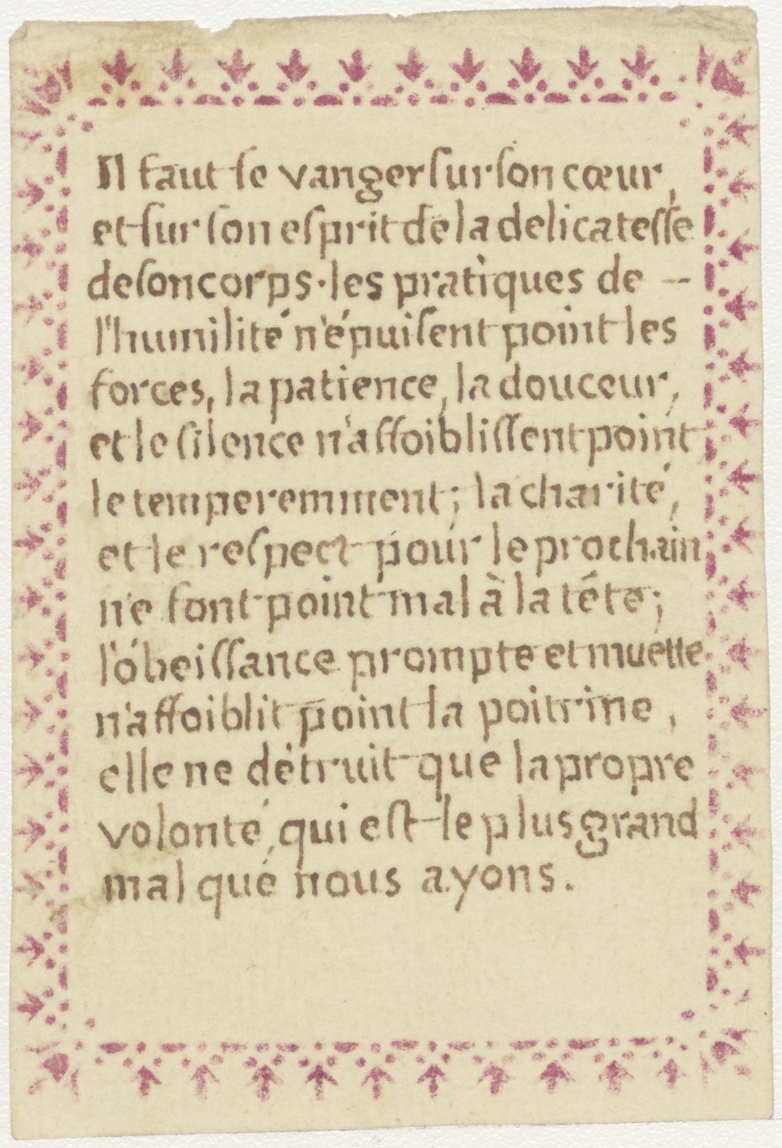 Il faut ſe vanger ſur ſon cœur,
et ſur ſon eſprit de la delicateſſe
de ſon corps. les pratiques de --
l'humilité n'épuiſent point les
forces, la patience, la douceur,
et le ſilence n'affoibliſſent point
le temperemment; la charité,
et le reſpect pour le prochain
ne font point mal à la téte;
l'óbeiſſance prompte et muétte
n'affoiblit point la poitrine,
elle ne détruit que la propre
volonté, qui eſt le plus grand
mal que nous ayons.